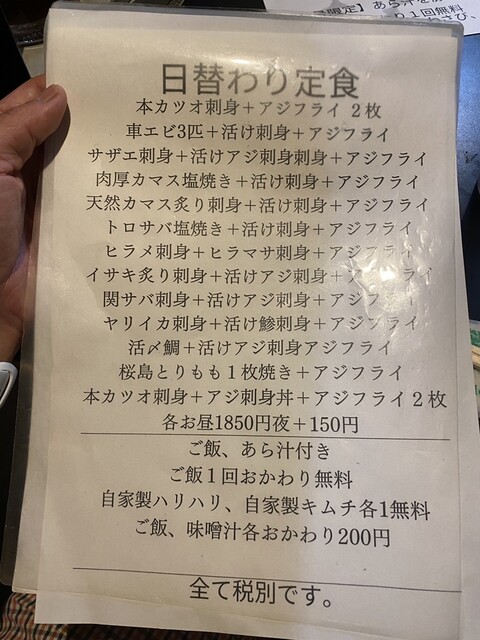 限定】あら汁を
り1回無料
わさび、
日替わり定食
本カツオ刺身＋アジフライ ２枚
車エビ3匹＋活け刺身＋アジフライ
サザエ刺身＋活けアジ刺身刺身＋アジフライ
肉厚カマス塩焼き＋活け刺身＋アジフライ
天然カマス炙り刺身＋活け刺身＋アジフライ
トロサバ塩焼き＋活け刺身＋アジフライ
ヒラメ刺身＋ヒラマサ刺身＋アジフライ
イサキ炙り刺身＋活けアジ刺身＋アジフライ
関サバ刺身＋活けアジ刺身＋アジフライ
ヤリイカ刺身＋活け鯵刺身＋アジフライ
活〆鯛＋活けアジ刺身アジフライ
桜島とりもも１枚焼き＋アジフライ
本カツオ刺身＋アジ刺身丼＋アジフライ２枚
各お昼1850円夜＋150円
ご飯、あら汁付き
ご飯１回おかわり無料
自家製ハリハリ、自家製キムチ各1無料
ご飯、味噌汁各おかわり200円
全て税別です。